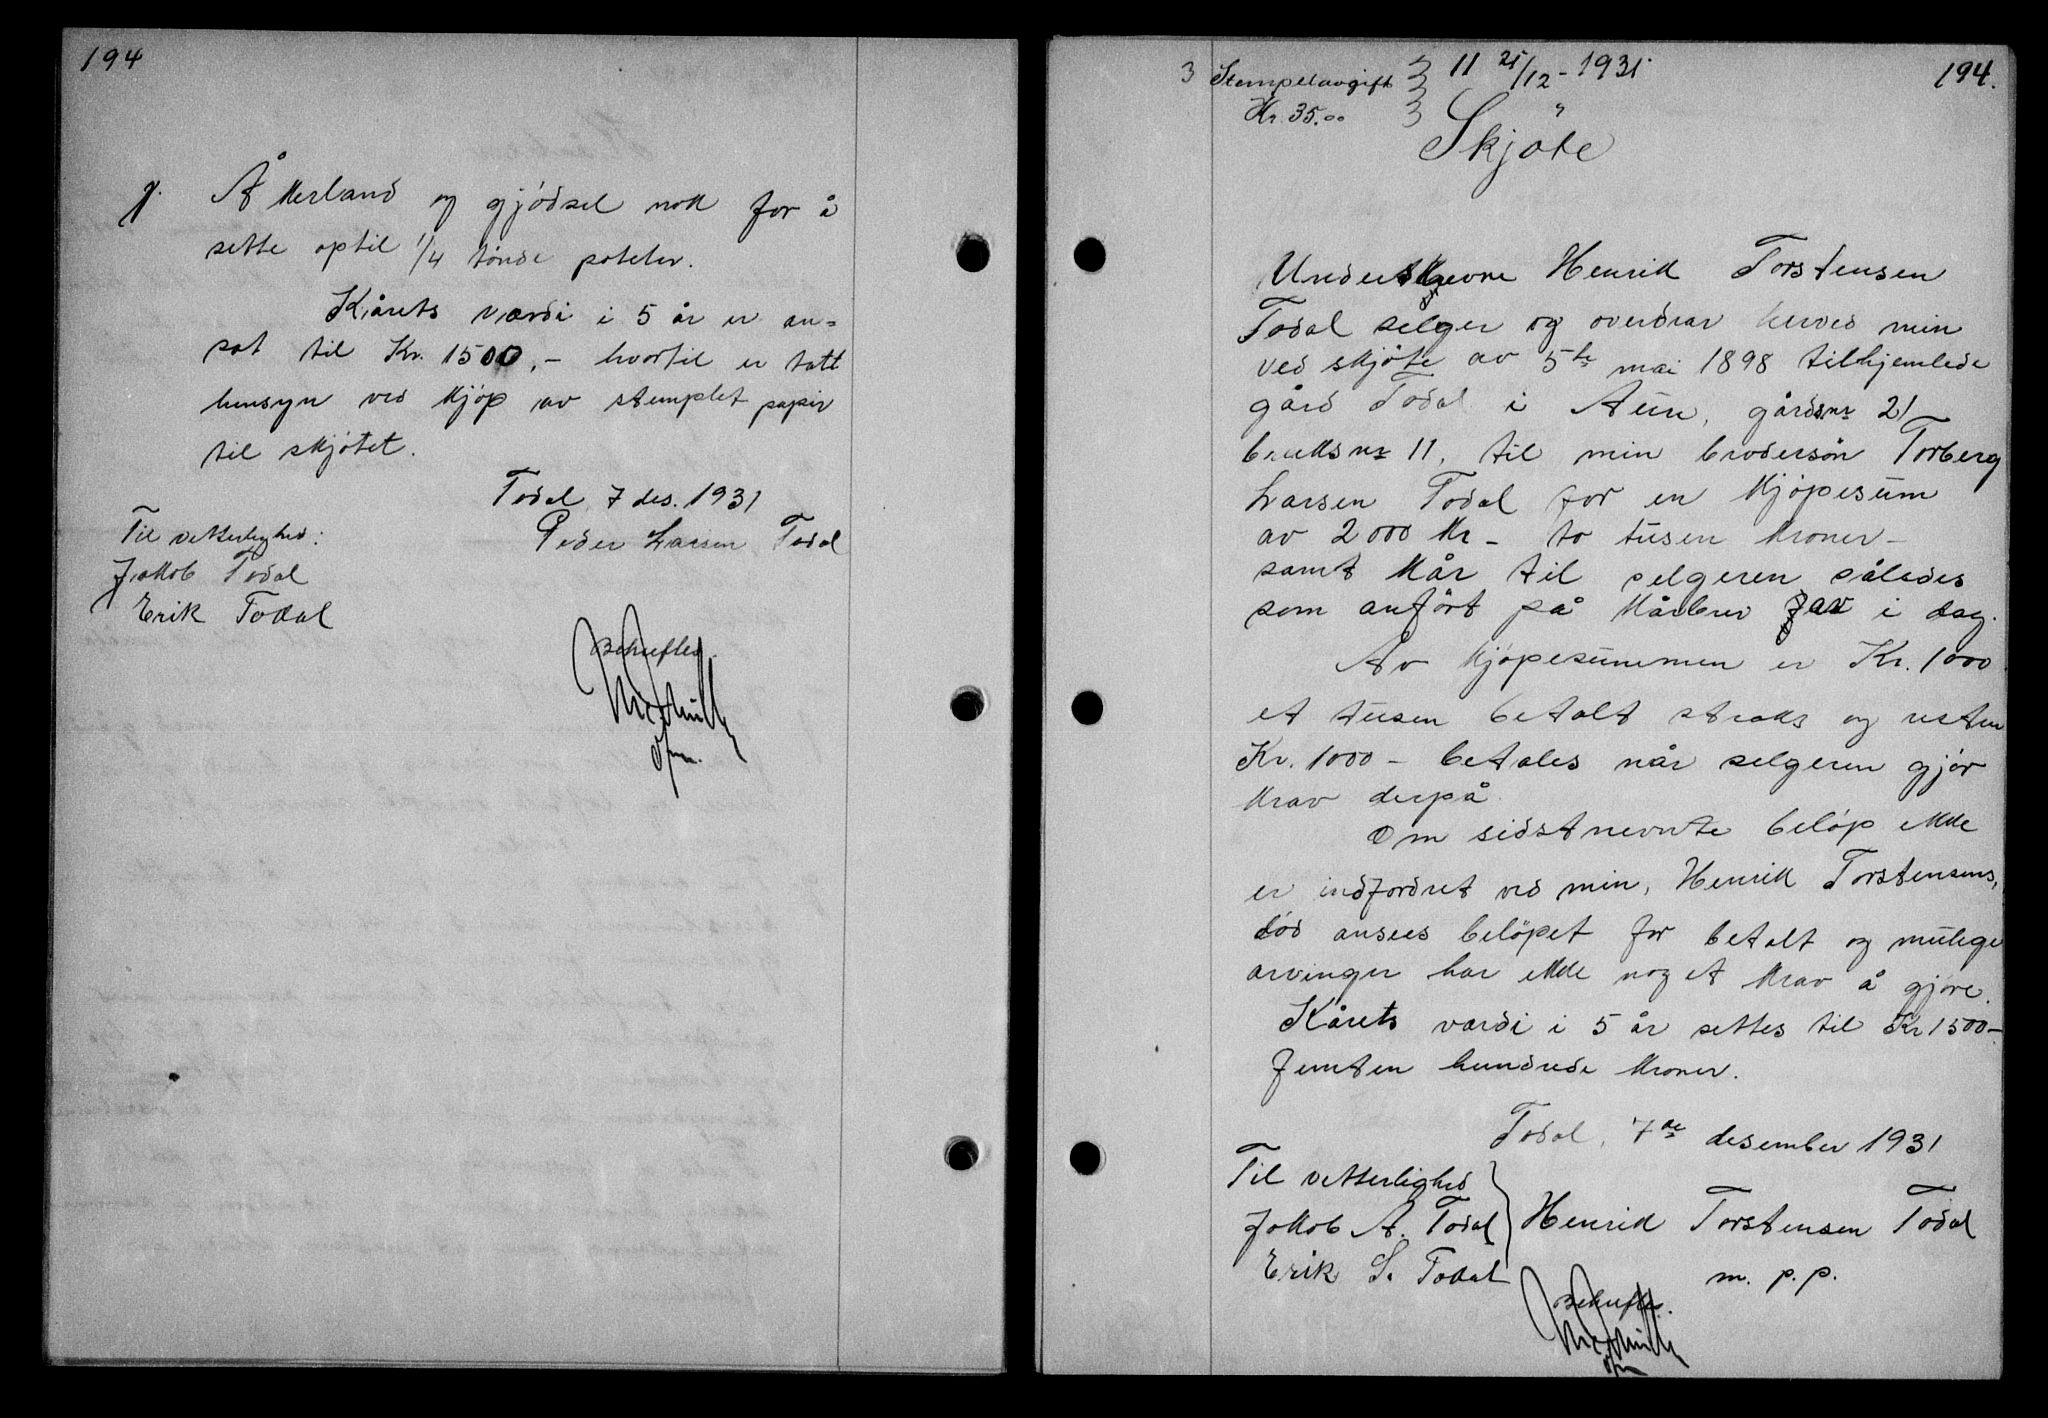 194
g. Åkerland og gjödsel nok for å
sette optil 1/4 tönde poteter.
Kårets værdi i 5 år er an=
sat til Kr. 1500,- hvortil er tatt
hensyn ved kjöp av stemplet papir
til skjötet.
Todal, 7 des. 1931
Peder Larsen Todal
Til vetterlighed:
Jakob Todal
Erik Todal
Bekreftes.
194.
3 Stempelavgift 11 21/12-1931
Kr. 35.00
Skjöte
Underskrevne Henrik Torstensen
Todal selger og overdrar herved min
ved skjöte av 5te mai 1898 tilhjemlede
gård Todal i Aure, gårdsnr 21
bruksnr 11, til min brodersön Torberg
Larsen Todal for en kjöpesum
av 2000 kr - to tusen kroner -
samt kår til selgeren således
som anfört på kårbrev av i dag.
Av kjöpesummen er Kr. 1000
et tusen betalt straks og resten
Kr. 1000 - betales når selgeren gjör
krav derpå.
Om sidstnevnte belöp ikke
er indfordret ved min, Henrik Torstensens,
död ansees belöpet for betalt og mulige
arvinger har ikke noget krav å gjöre.
Kårets værdi i 5 år settes til Kr 1500-
femten hundrede kroner.
Todal, 7de desember 1931
Til vetterlighed
Jakob A. Todal
Erik S. Todal
Henrik Torstensen Todal
m. p. p.
Bekreftes.